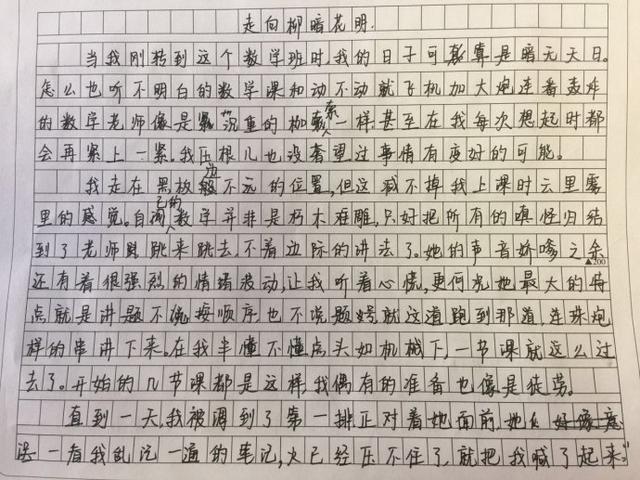 走向柳暗花明.
当我刚转到这个数学班时,我的日子可真算是暗无天日。
怎么也听不明白的数学课和动不动就飞机加大炮连番轰炸
的数学老师像是沉重的枷锁一样.甚至在我每次想起时都
会再紧上一紧。我压根儿也没奢望过事情有变好的可能。
我走在黑板边不远的位置,但这减不掉我上课时云里雾
里的感觉。自己的数学并非是朽木难雕,只好把所有的嗔怪归结
到了老师跳来跳去、不着边际的讲法了。她的声音娇嗲之余
▲200
还有着很强烈的情绪波动,让我听着心慌,更何况她最大的特
点就是讲题不按顺序也不说题号就这道跑到那道,连珠炮
样的串讲下来。在我半懂不懂点头如机械下,一节课就这么过
去了。开始的几节课都是这样,我偶有的准备也像是徒劳。
直到一天,我被调到了第一排正对着她面前,她
一看我乱说一通的笔记,火已经压不住了,就把我喊了起来。